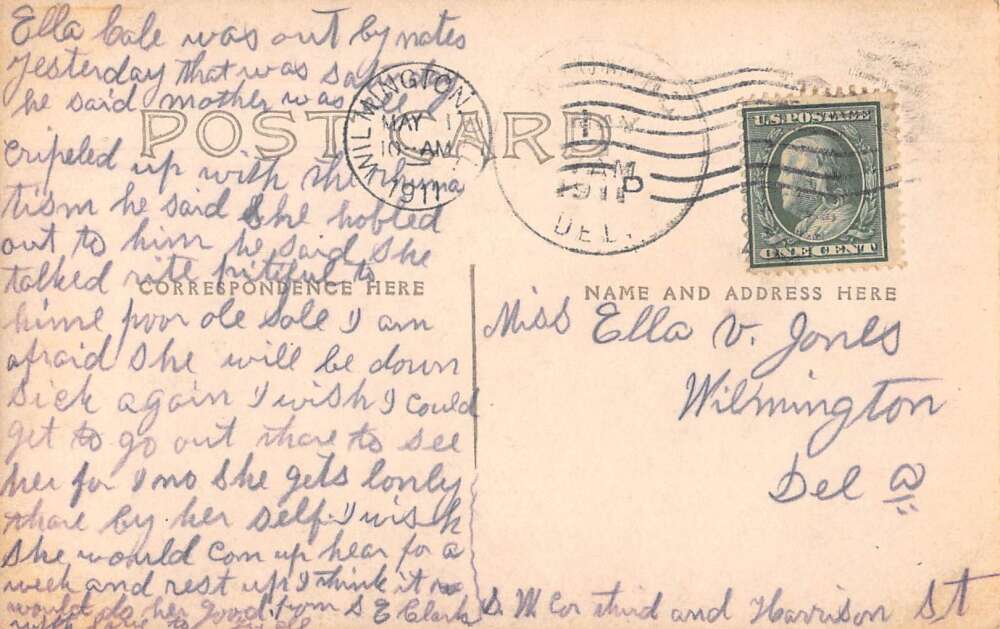 Ella Cale was out by nates
yesterday that was saturday
he said mother was all
POST CARD
cripeled up with the rhuma
tism he said She hobled
out to him he said She
talked rite pitiful to
CORRESPONDENCE HERE
hime poor ole Sole I am
afraid She will be down
Sick again I wish I could
get to go out thare to see
her for I no She gets lonly
thare by her self. I wish
She would com up hear for a
week and rest up I think it
would do her good. from S E Clark
with love to
WILMINGTON
MAY 1
10-AM
1911
AM
1911
P
DEL.
U.S. POSTAGE
ONE CENT
NAME AND ADDRESS HERE
Miss Ella V. Jones
Wilmington
Del a
S. W Cor third and Harrison St